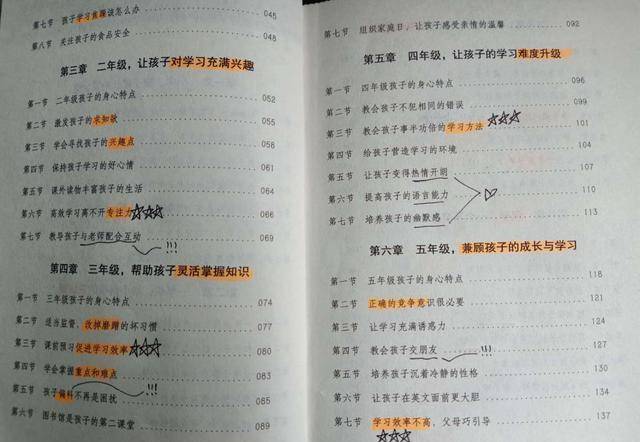 第七节 孩子学习焦躁该怎么办 045
第八节 关注孩子的食品安全 048
第三章 二年级，让孩子对学习充满兴趣
第一节 二年级孩子的身心特点 052
第二节 激发孩子的求知欲 055
第三节 学会寻找孩子的兴趣点 058
第四节 保持孩子学习的好心情 061
第五节 课外读物丰富孩子的生活 064
第六节 高效学习离不开专注力 066
第七节 教导孩子与老师配合互动 069
!!!
第四章 三年级，帮助孩子灵活掌握知识
第一节 三年级孩子的身心特点 074
第二节 适当监督，改掉磨蹭的坏习惯 077
第三节 课前预习促进学习效率 080
第四节 学会掌握重点和难点 083
第五节 孩子偏科不再是困扰 !!! 085
第六节 图书馆是孩子的第二课堂 089
第七节 组织家庭日，让孩子感受亲情的温馨 092
第五章 四年级，让孩子的学习难度升级
第一节 四年级孩子的身心特点 096
第二节 教会孩子不犯相同的错误 099
第三节 教会孩子事半功倍的学习方法 101
第四节 给孩子营造学习的环境 104
第五节 让孩子变得热情开朗 107
第六节 提高孩子的语言能力 110
第七节 培养孩子的幽默感 113
第六章 五年级，兼顾孩子的成长与学习
第一节 五年级孩子的身心特点 118
第二节 正确的竞争意识很必要 121
第三节 让学习充满诱惑力 124
第四节 教会孩子交朋友 !!! 127
第五节 培养孩子沉着冷静的性格 130
第六节 让孩子在英文面前更大胆 134
第七节 学习效率不高，父母巧引导 137